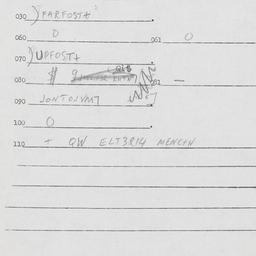 030 ) FARFOST+
060 0 061 0
070 ) UPFOST+
080 $ 9 081 —
090 JONTOJVM7
100 0
110 + QW ELT3R14 MENCYN